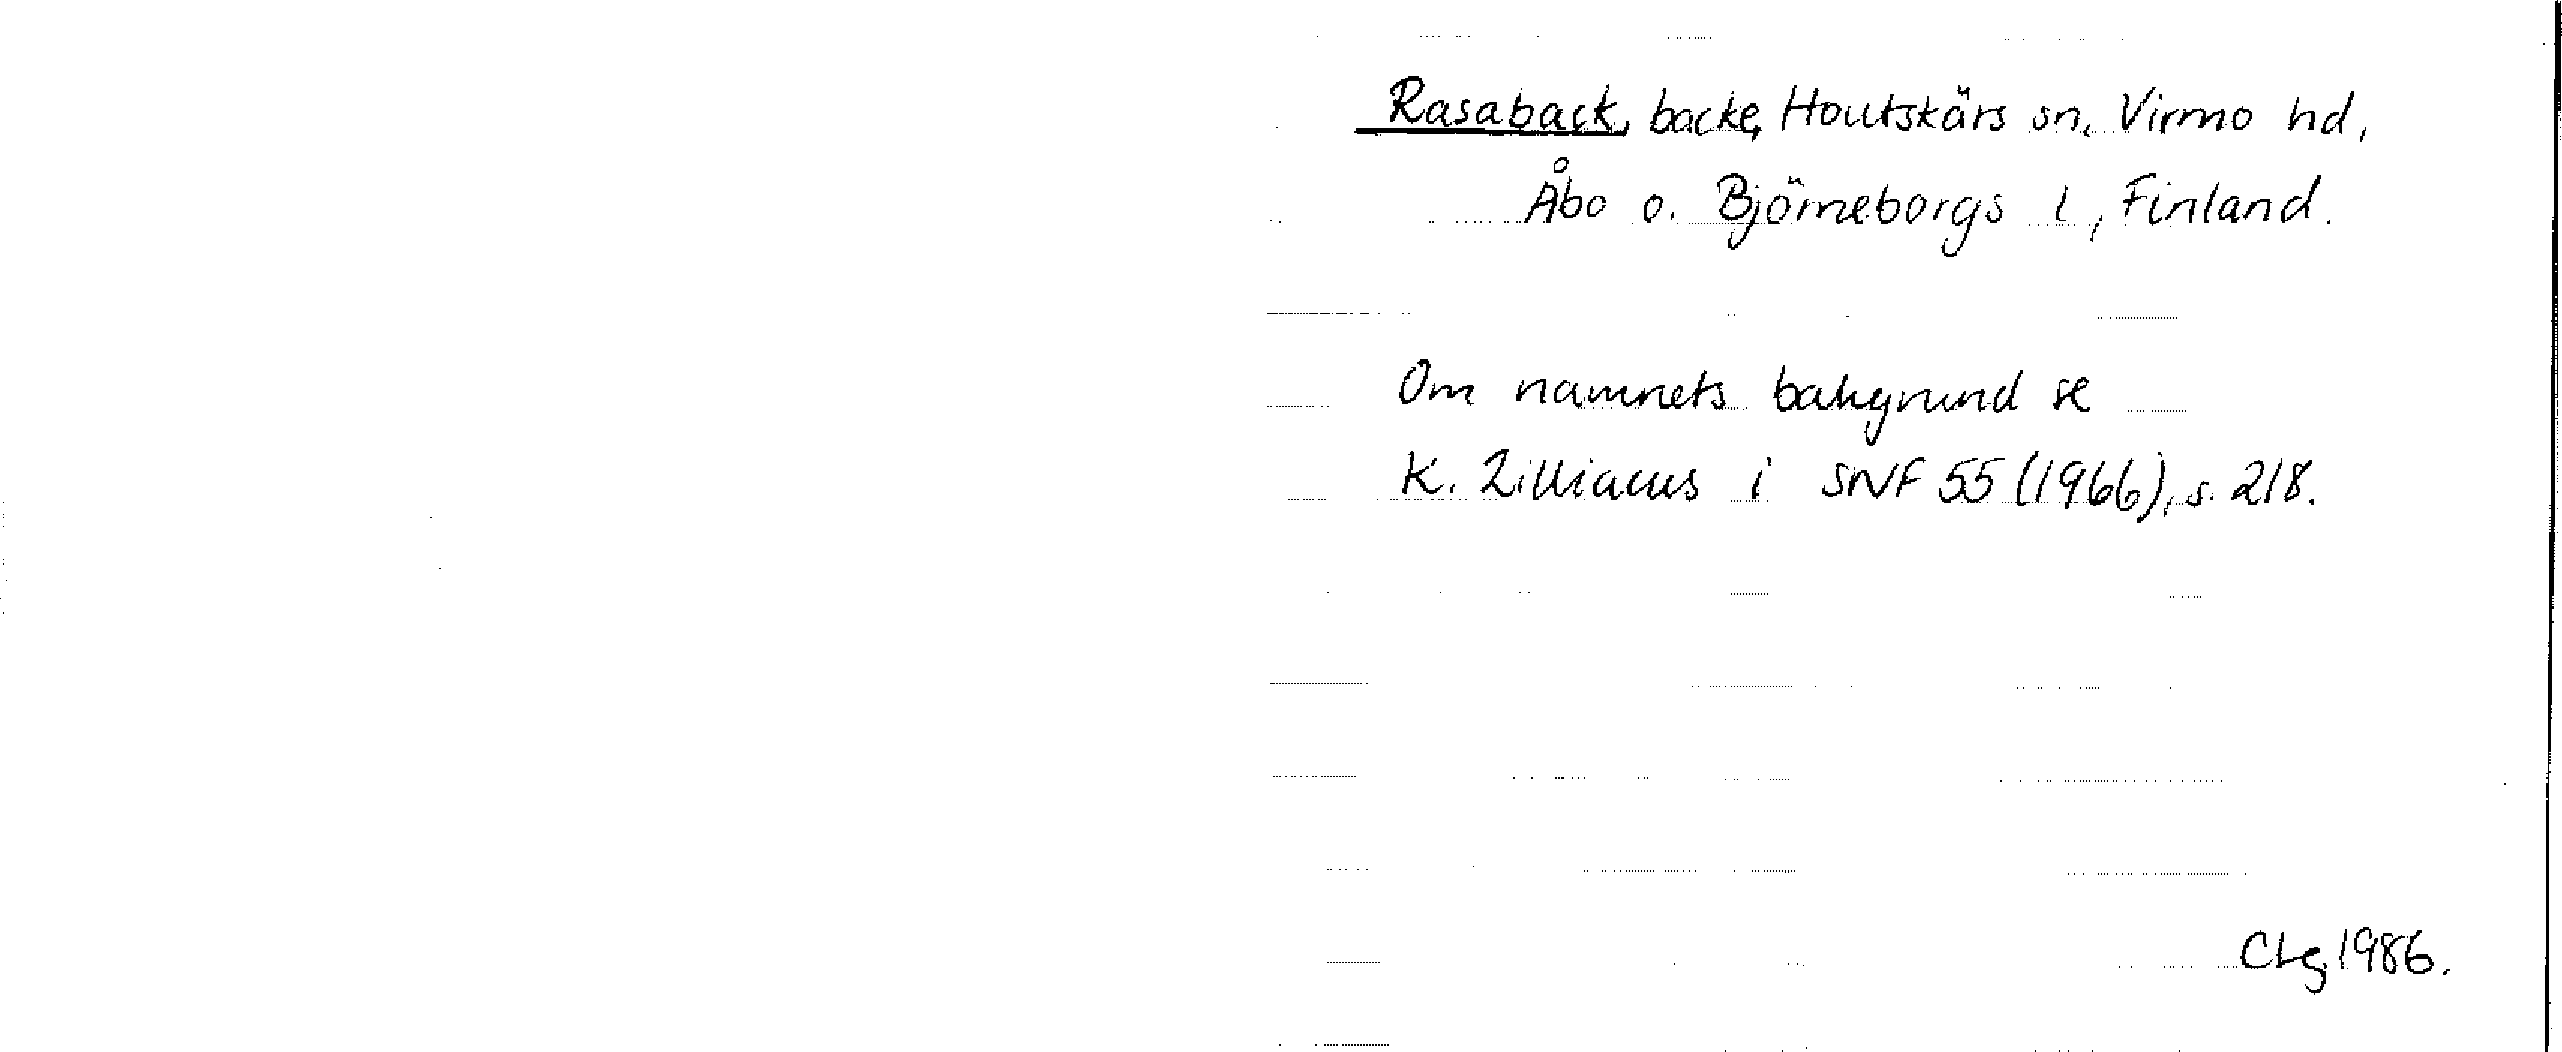 Rasaback, backe, Houtskärs sn, Virmo hd,
Åbo o. Björneborgs l, Finland.
Om namnets bakgrund se
K. Zilliacus i SNF 55 (1966), s. 218.
CLg 1986.